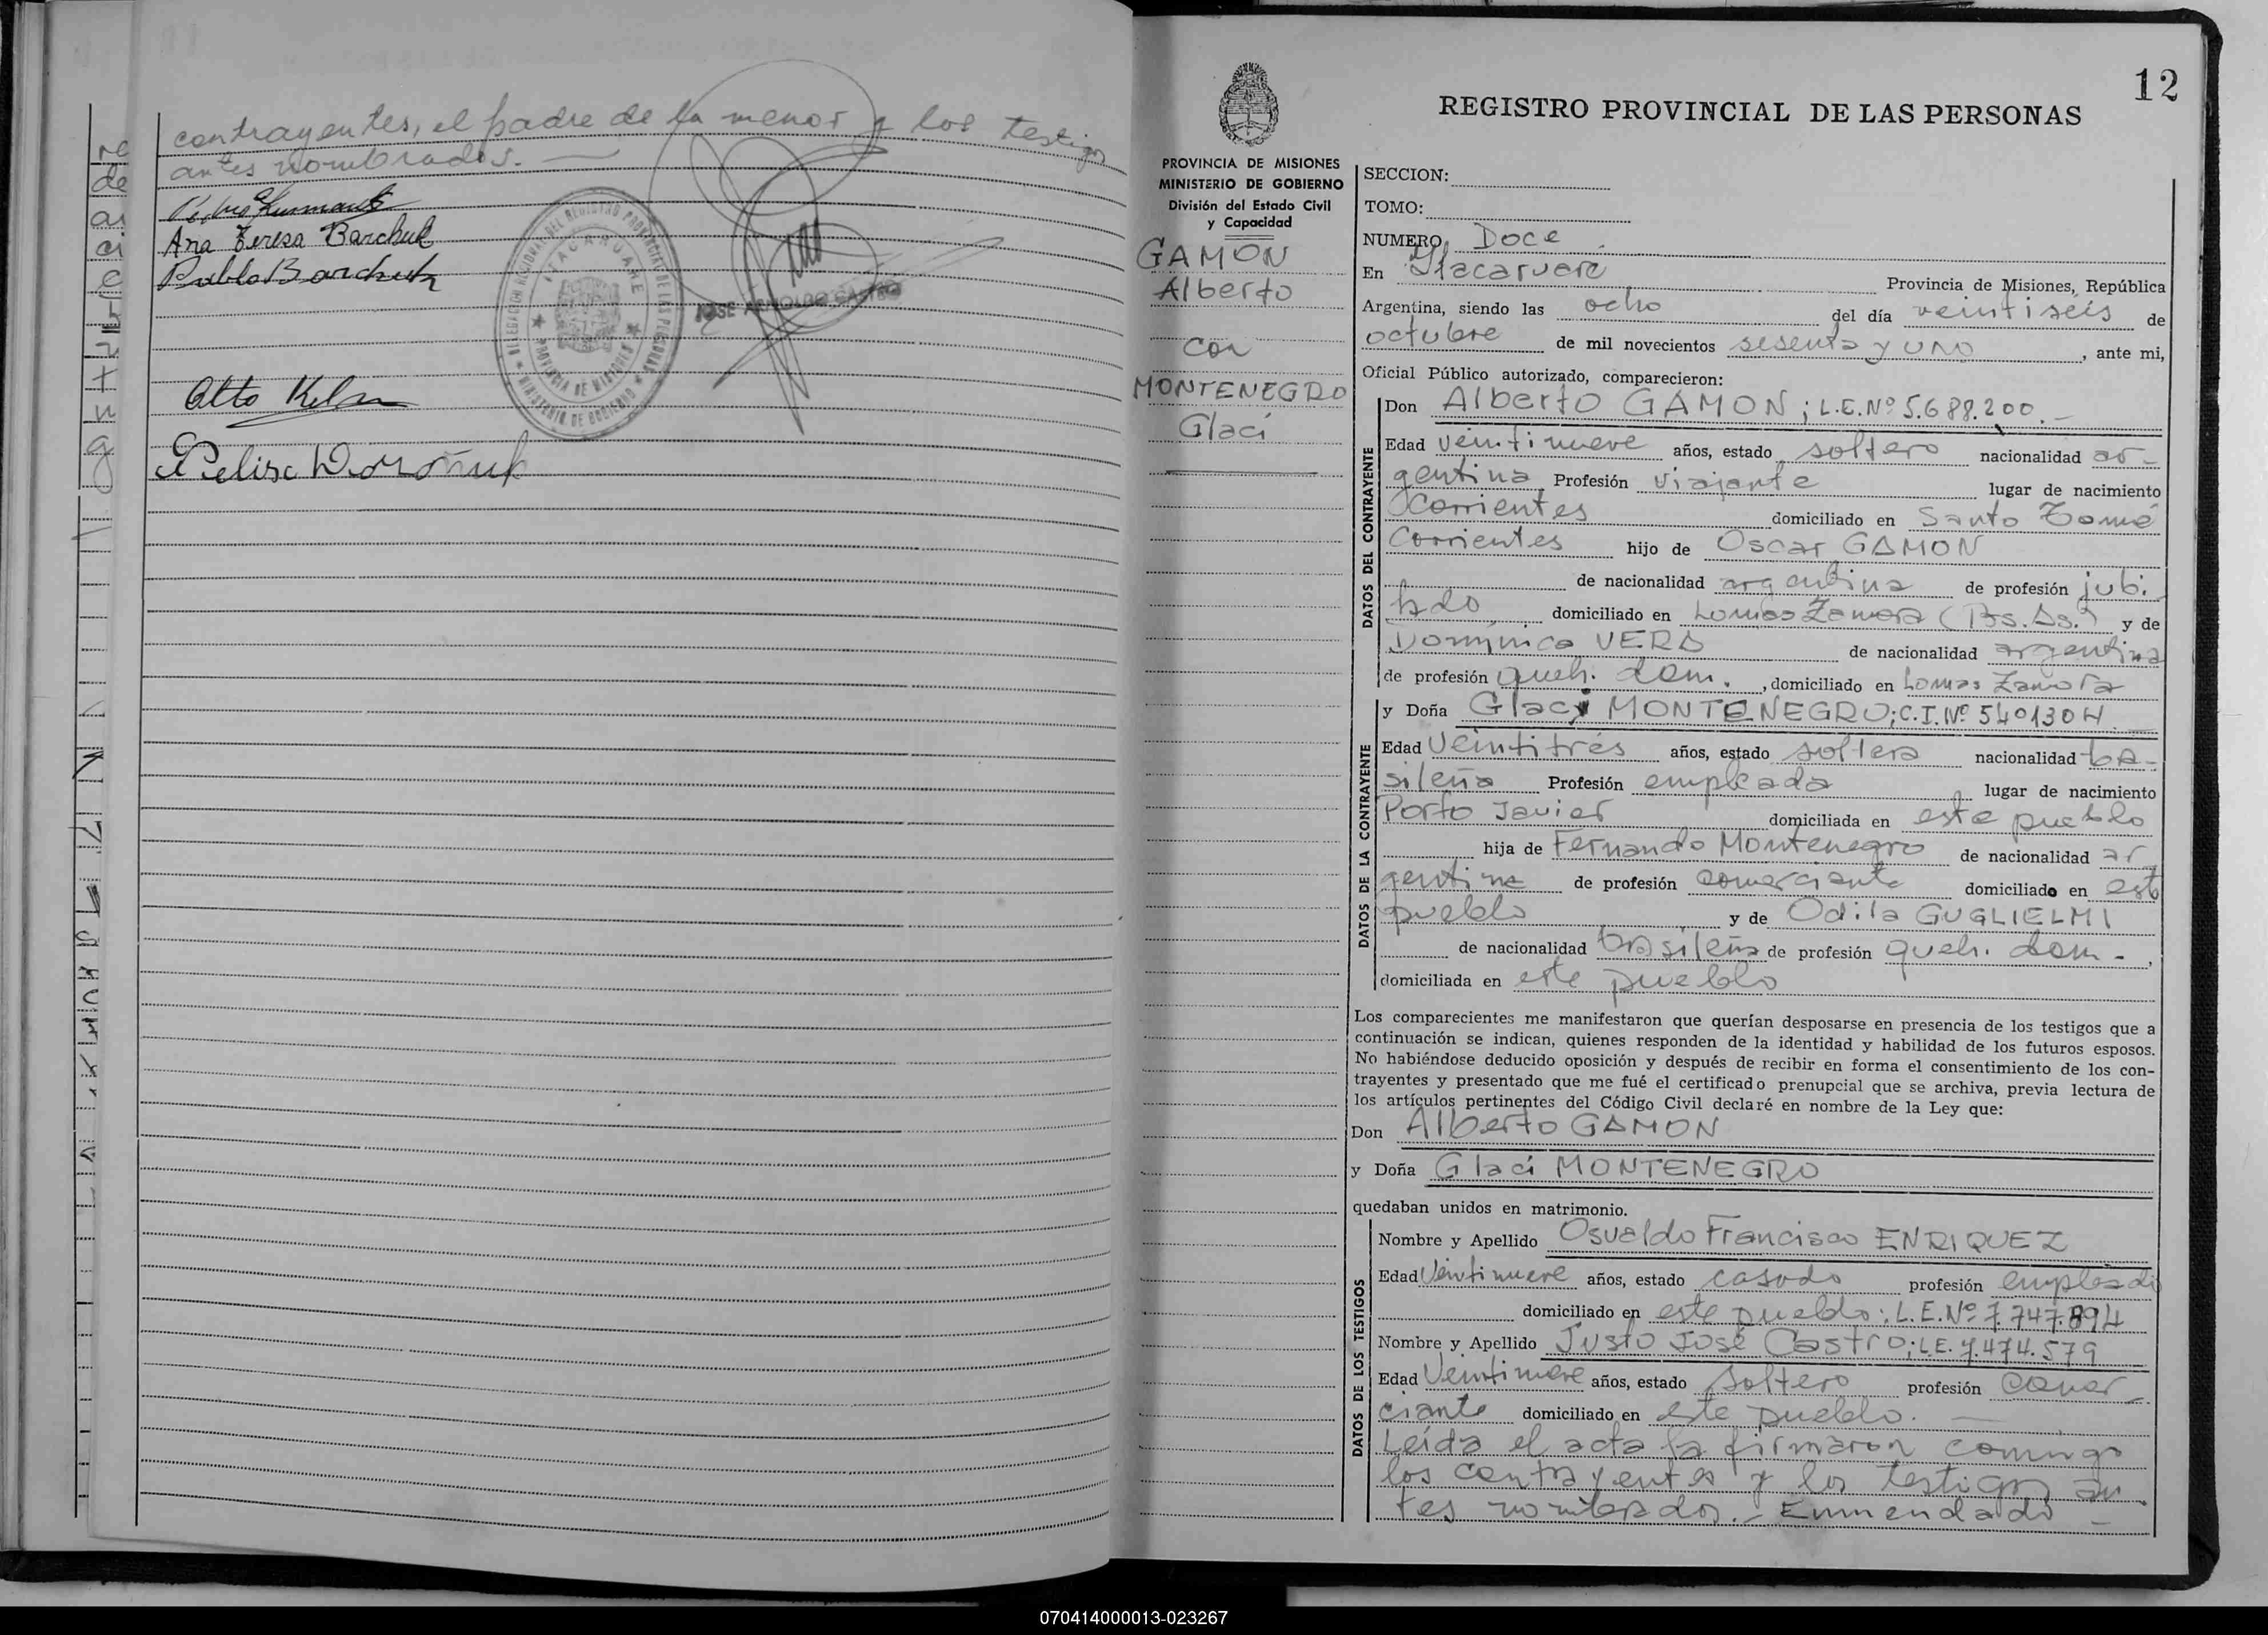 contrayentes, el padre de la menor y los testigos
antes nombrados.-
Ana Teresa Barchuk
Pablo Barchuk
JOSE ARNOLDO CASTRO
DELEGACION REGIONAL DEL REGISTRO PROVINCIAL DE LAS PERSONAS
ITACARUARE
PROVINCIA DE MISIONES
MINISTERIO DE GOBIERNO
Otto
12
REGISTRO PROVINCIAL DE LAS PERSONAS
PROVINCIA DE MISIONES
MINISTERIO DE GOBIERNO
División del Estado Civil
y Capacidad
GAMON
Alberto
con
MONTENEGRO
Glaci
SECCION:
TOMO:
NUMERO Doce
En Itacaruaré Provincia de Misiones, República
Argentina, siendo las ocho del día veintiséis de
octubre de mil novecientos sesenta y uno, ante mi,
Oficial Público autorizado, comparecieron:
DATOS DEL CONTRAYENTE
Don Alberto GAMON; L.E.Nº 5.688.200.-
Edad veintinueve años, estado soltero nacionalidad ar-
gentina Profesión viajante lugar de nacimiento
Corrientes domiciliado en Santo Tomé
Corrientes hijo de Oscar GAMON
de nacionalidad argentina de profesión jubi-
lado domiciliado en Lomas Zamora (Bs.As.) y de
Dominica VERA de nacionalidad argentina
de profesión queh. dom., domiciliado en Lomas Zamora
DATOS DE LA CONTRAYENTE
y Doña Glaci MONTENEGRO; C.I.Nº 5401304
Edad veintitrés años, estado soltera nacionalidad bra-
sileña Profesión empleada lugar de nacimiento
Porto Javier domiciliada en este pueblo
hija de Fernando Montenegro de nacionalidad ar-
gentina de profesión comerciante domiciliado en este
pueblo y de Odila GUGLIELMI
de nacionalidad brasileña de profesión queh. dom.-,
domiciliada en este pueblo
Los comparecientes me manifestaron que querían desposarse en presencia de los testigos que a
continuación se indican, quienes responden de la identidad y habilidad de los futuros esposos.
No habiéndose deducido oposición y después de recibir en forma el consentimiento de los con-
trayentes y presentado que me fué el certificado prenupcial que se archiva, previa lectura de
los artículos pertinentes del Código Civil declaré en nombre de la Ley que:
Don Alberto GAMON
y Doña Glaci MONTENEGRO
quedaban unidos en matrimonio.
DATOS DE LOS TESTIGOS
Nombre y Apellido Osvaldo Francisco ENRIQUEZ
Edad veintinueve años, estado casado profesión empleado
domiciliado en este pueblo; L.E.Nº 7.747.894
Nombre y Apellido Justo José Castro; L.E. 7.474.579
Edad veintinueve años, estado soltero profesión comer-
ciante domiciliado en este pueblo. -
Leída el acta la firmaron conmigo
los contrayentes y los testigos an-
tes nombrados.- Enmendado -
070414000013-023267